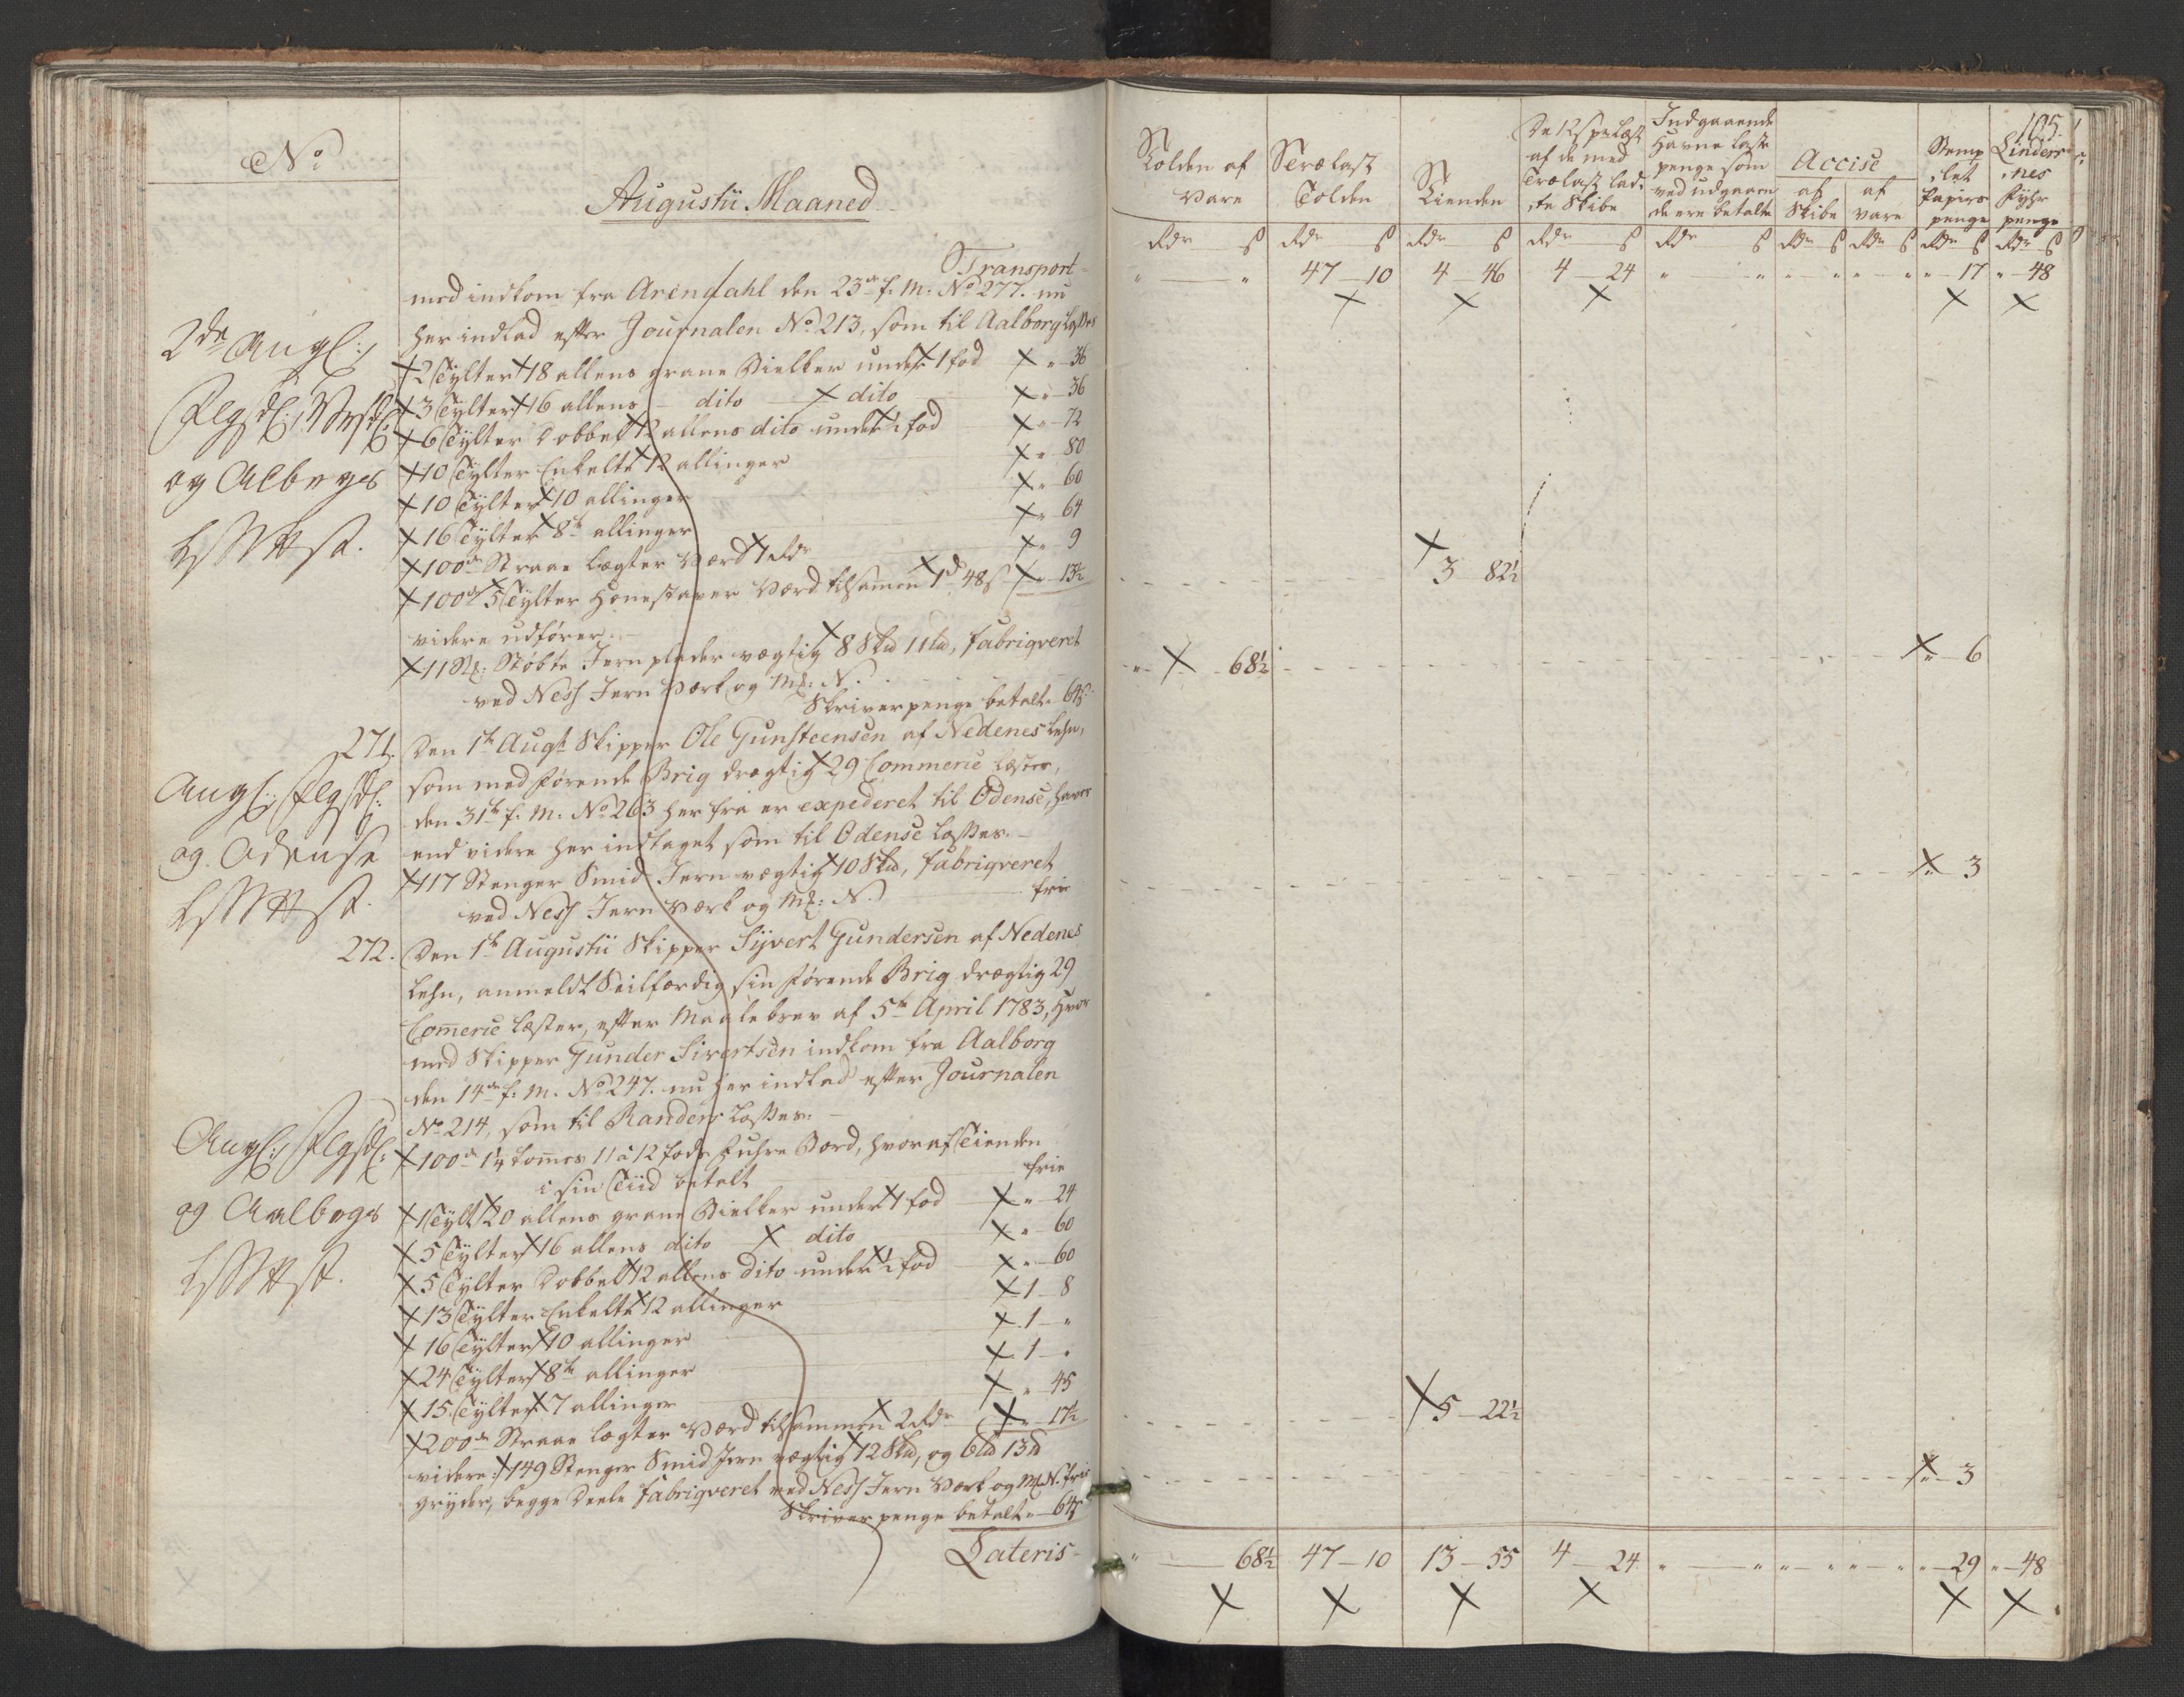 No
Augustii Maaned
Transport
med indkom fra Arendahl den 23de f: M: No 277. nu
her indlad efter Journalen No 213, som til Aalborg losses
2 Tylter 18 allens grane Bielker under 1 fod " 36
3 Tylter 16 allens dito dito " 36
6 Tylter Dobbelt 12 allens dito under ½ fod " 72
10 Tylter Enkelte 12 allinger " 80
10 Tylter 10 allinger " 60
16 Tylter 8te allinger " 64
100de Straae Lægter Værd 1 rdr " 9
100de 5 Tylter Hønestaver Værd tilsamen 1 d 48 s " 13½
videre udfører
11 St: Støbte Jern plader vægtig 8 Skd 11 Ld, fabriqveret
ved Ness Jern Værk og M: N.
Skriver penge betalt " 64 s
2de Angl:
og Albrgs
271. Den 1te Augti Skipper Ole Gunsteensen af Nedenes Lehn,
som med førende Brig drægtig 29 Commerce Læster,
den 31te f: M: No 263 her fra er expederet til Odense, haver
end videre her indtaget som til Odense losses.
117 Stenger Smid Jern vægtig 10 Skd, fabriqveret
ved Ness Jern Værk og M: N. frie
og Odense
272. Den 1te Augustii Skipper Sijvert Gundersen af Nedenes
Lehn, anmeldt Seilfærdig sin førende Brig drægtig 29
Commerce Læster, efter Maalebrev af 5te April 1783, hvor
med Skipper Gunder Sivertsen indkom fra Aalborg
den 14de f: M. No 247. nu her indlad efter Journalen
No 214, som til Randers losses:
100de 1¼ tommes 11 a 12 fods Fuhre Bord, hvoraf Tienden
i sin Tiid betalt frie
1 Tylt 20 allens grane Bielker under 1 fod " 24
5 Tylter 16 allens dito dito " 60
5 Tylter Dobbelt 12 allens dito under ½ fod " 60
13 Tylter Enkelte 12 allinger 1 8
16 Tylter 10 allinger 1 "
24 Tylter 8te allinger 1 "
15 Tylter 7 allinger " 45
200de Straae lægter Værd tilsammen 2 rdr " 17½
videre: 149 Stenger Smid Jern vægtig 12 Skd, og 6 Ld 13 d
gryder, begge Deele fabriqveret ved Ness Jern Værk og M: N. frie
Skriver penge betalt " 64 s
Lateris
og Aalbrgs
105.
Tolden af Vare
Trælast Tolden
Tienden
De 12 s pr læst af de med Trælast ladte Skibe
Indgaaende Havne Laste penge som ved udgaaende ere betalte
Accise
af Skibe
af vare
Stemplet Papirs penge
Lindersnes Fyhr penge
Rdr s Rdr s Rdr s Rdr s Rdr s Rdr s Rdr s Rdr s Rdr s
" " 47 10 4 46 4 24 " " " " " " " 17 " 48
3 82½
" 68½ " 6
" 3
5 22½
" 3
" 68½ 47 10 13 55 4 24 " " " " " " " 29 " 48